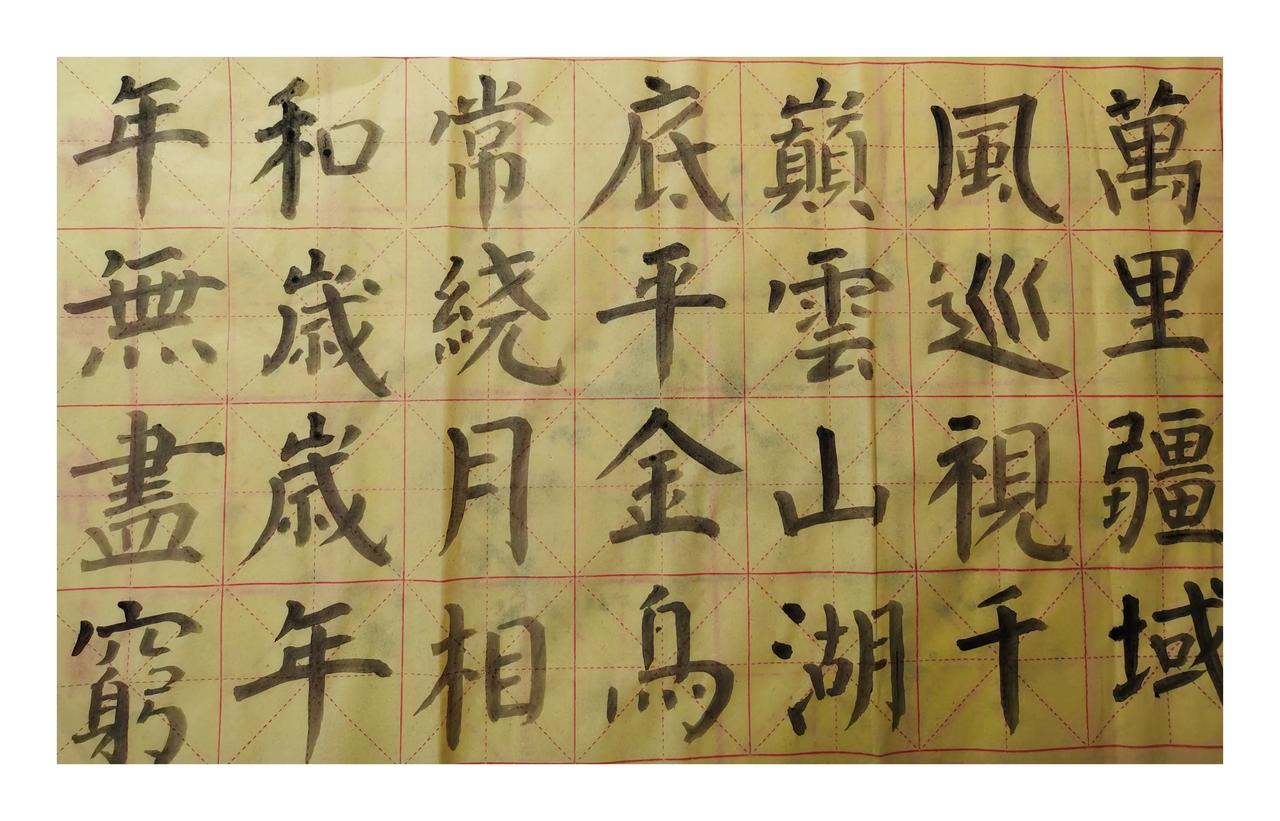 萬里疆域
風巡視千
巔雲山湖
底平金烏
常繞月相
和歳歳年
年無盡窮